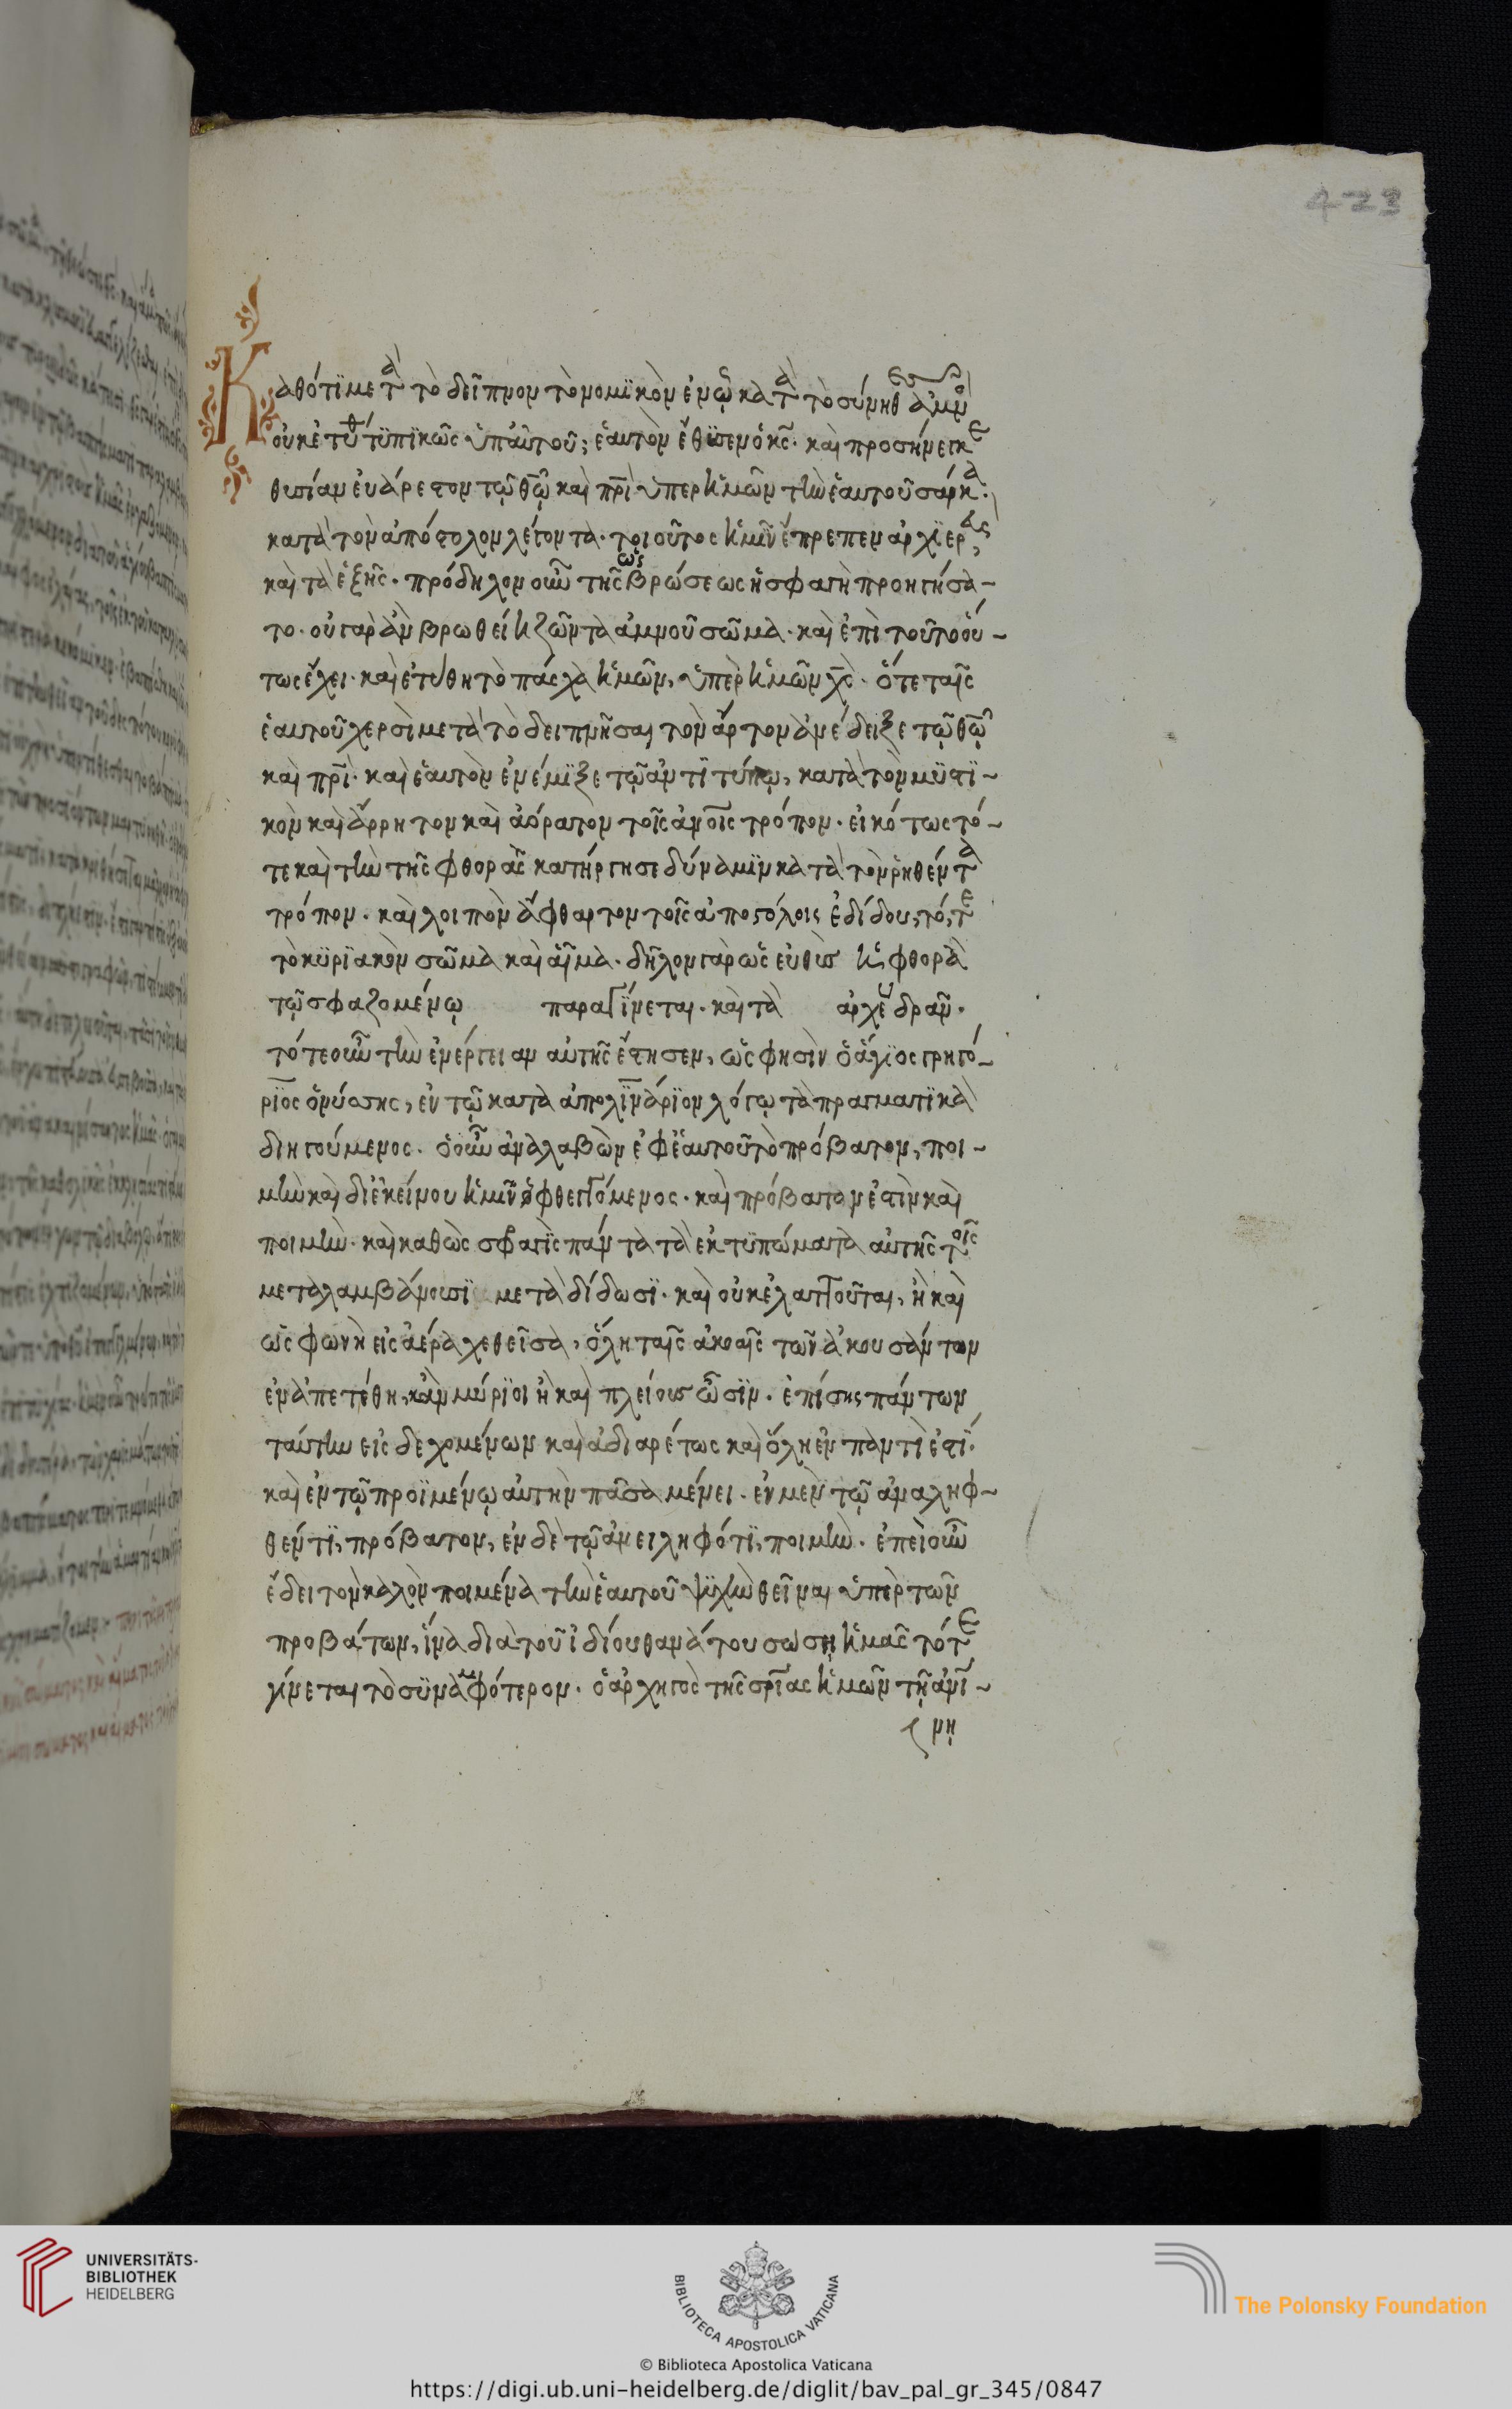 423
Καθότι μετὰ τὸ δεῖπνον τὸ νομικὸν ἐν ᾧ κατὰ τὸ σύνηθες ἀμνὸν
οὐκ ἐτύθη τυπικῶς ὑπ' αὐτοῦ; ἑαυτὸν ἔθυσεν ὁ κς̄. καὶ προσήνεγκε
θυσίαν εὐάρεστον τῷ θω̄ καὶ πρ̄ὶ ὑπὲρ ἡμῶν τὴν ἑαυτοῦ σάρκα.
κατὰ τὸν ἀπόστολον λέγοντα. τοιοῦτος ἡμῖν ἔπρεπεν ἀρχιερεὺς,
καὶ τὰ ἑξῆς. πρόδηλον οὖν ὡς τῆς βρώσεως ἡ σφαγὴ προηγήσα-
το. οὐ γὰρ ἂν βρωθείη ζῶντα ἀμνοῦ σῶμα. καὶ ἐπὶ τοῦτο οὕ-
τως ἔχει. καὶ ἐτύθη τὸ πάσχα ἡμῶν, ὑπὲρ ἡμῶν χς̄. ὅτε ταῖς
ἑαυτοῦ χερσὶ μετὰ τὸ δειπνῆσαι τὸν ἄρτον ἀνέδειξε τῷ θω̄
καὶ πρ̄ὶ. καὶ ἑαυτὸν ἐνέμιξε τῷ ἀντιτύπῳ, κατὰ τὸν μυστι-
κὸν καὶ ἄρρητον καὶ ἀόρατον τοῖς ἀν̄οις τρόπον. εἰκότως τό-
τε καὶ τὴν τῆς φθορᾶς κατήργησε δύναμιν κατὰ τὸν ῥηθέντα
τρόπον. καὶ λοιπὸν ἄφθαρτον τοῖς ἀποστόλοις ἐδίδου, τότε
τὸ κυριακὸν σῶμα καὶ αἷμα. δῆλον γὰρ ὡς εὐθὺς ἡ φθορὰ
τῷ σφαζομένῳ παραγίνεται. καὶ τὰ ἀρχὴν δρᾶν.
τότε οὖν τὴν ἐνέργειαν αὐτῆς ἔστησεν, ὥς φησιν ὁ ἅγιος γρηγό-
ριος ὁ νύσης, ἐν τῷ κατὰ ἀπολινάριον λόγῳ τὰ πραγματικὰ
διηγούμενος. ὁ οὖν ἀναλαβὼν ἐφ' ἑαυτοῦ τὸ πρόβατον, ποι-
μὴν καὶ δι' ἐκείνου ἡμῖν ὁ φθεγγόμενος. καὶ πρόβατον ἐστὶν καὶ
ποιμήν. καὶ καθὼς σφαγὶς πάντα τὰ ἐκτυπώματα αὐτῆς τοῖς
μεταλαμβάνουσι μεταδίδωσι. καὶ οὐκ ἐλαττοῦται, ἢ καὶ
ὡς φωνὴ εἰς ἀέρα χεθεῖσα, ὅλη ταῖς ἀκοαῖς τῶν ἀκουσάντων
ἐναπετέθη, κἂν μύριοι ἢ καὶ πλείους ὦσιν. ἐπίσης πάντων
ταύτην εἰσδεχομένων καὶ ἀδιαρέτως καὶ ὅλη ἐν παντὶ ἐστί.
καὶ ἐν τῷ προϊμένῳ αὐτὴν πᾶσα μένει. ἐν μὲν τῷ ἀναληφ-
θέντι, πρόβατον, ἐν δὲ τῷ ἀνειληφότι, ποιμήν. ἐπεὶ οὖν
ἔδει τὸν καλὸν ποιμένα τὴν ἑαυτοῦ ψυχὴν θεῖναι ὑπὲρ τῶν
προβάτων, ἵνα διὰ τοῦ ἰδίου θανάτου σώσῃ ἡμᾶς τότε
γίνεται τὸ συναμφότερον. ὁ ἀρχηγὸς τῆς σρ̄ίας ἡμῶν τῇ ἀν̄ί-
νῃ
UNIVERSITÄTS-
BIBLIOTHEK
HEIDELBERG
BIBLIOTECA APOSTOLICA VATICANA
The Polonsky Foundation
© Biblioteca Apostolica Vaticana
https://digi.ub.uni-heidelberg.de/diglit/bav_pal_gr_345/0847